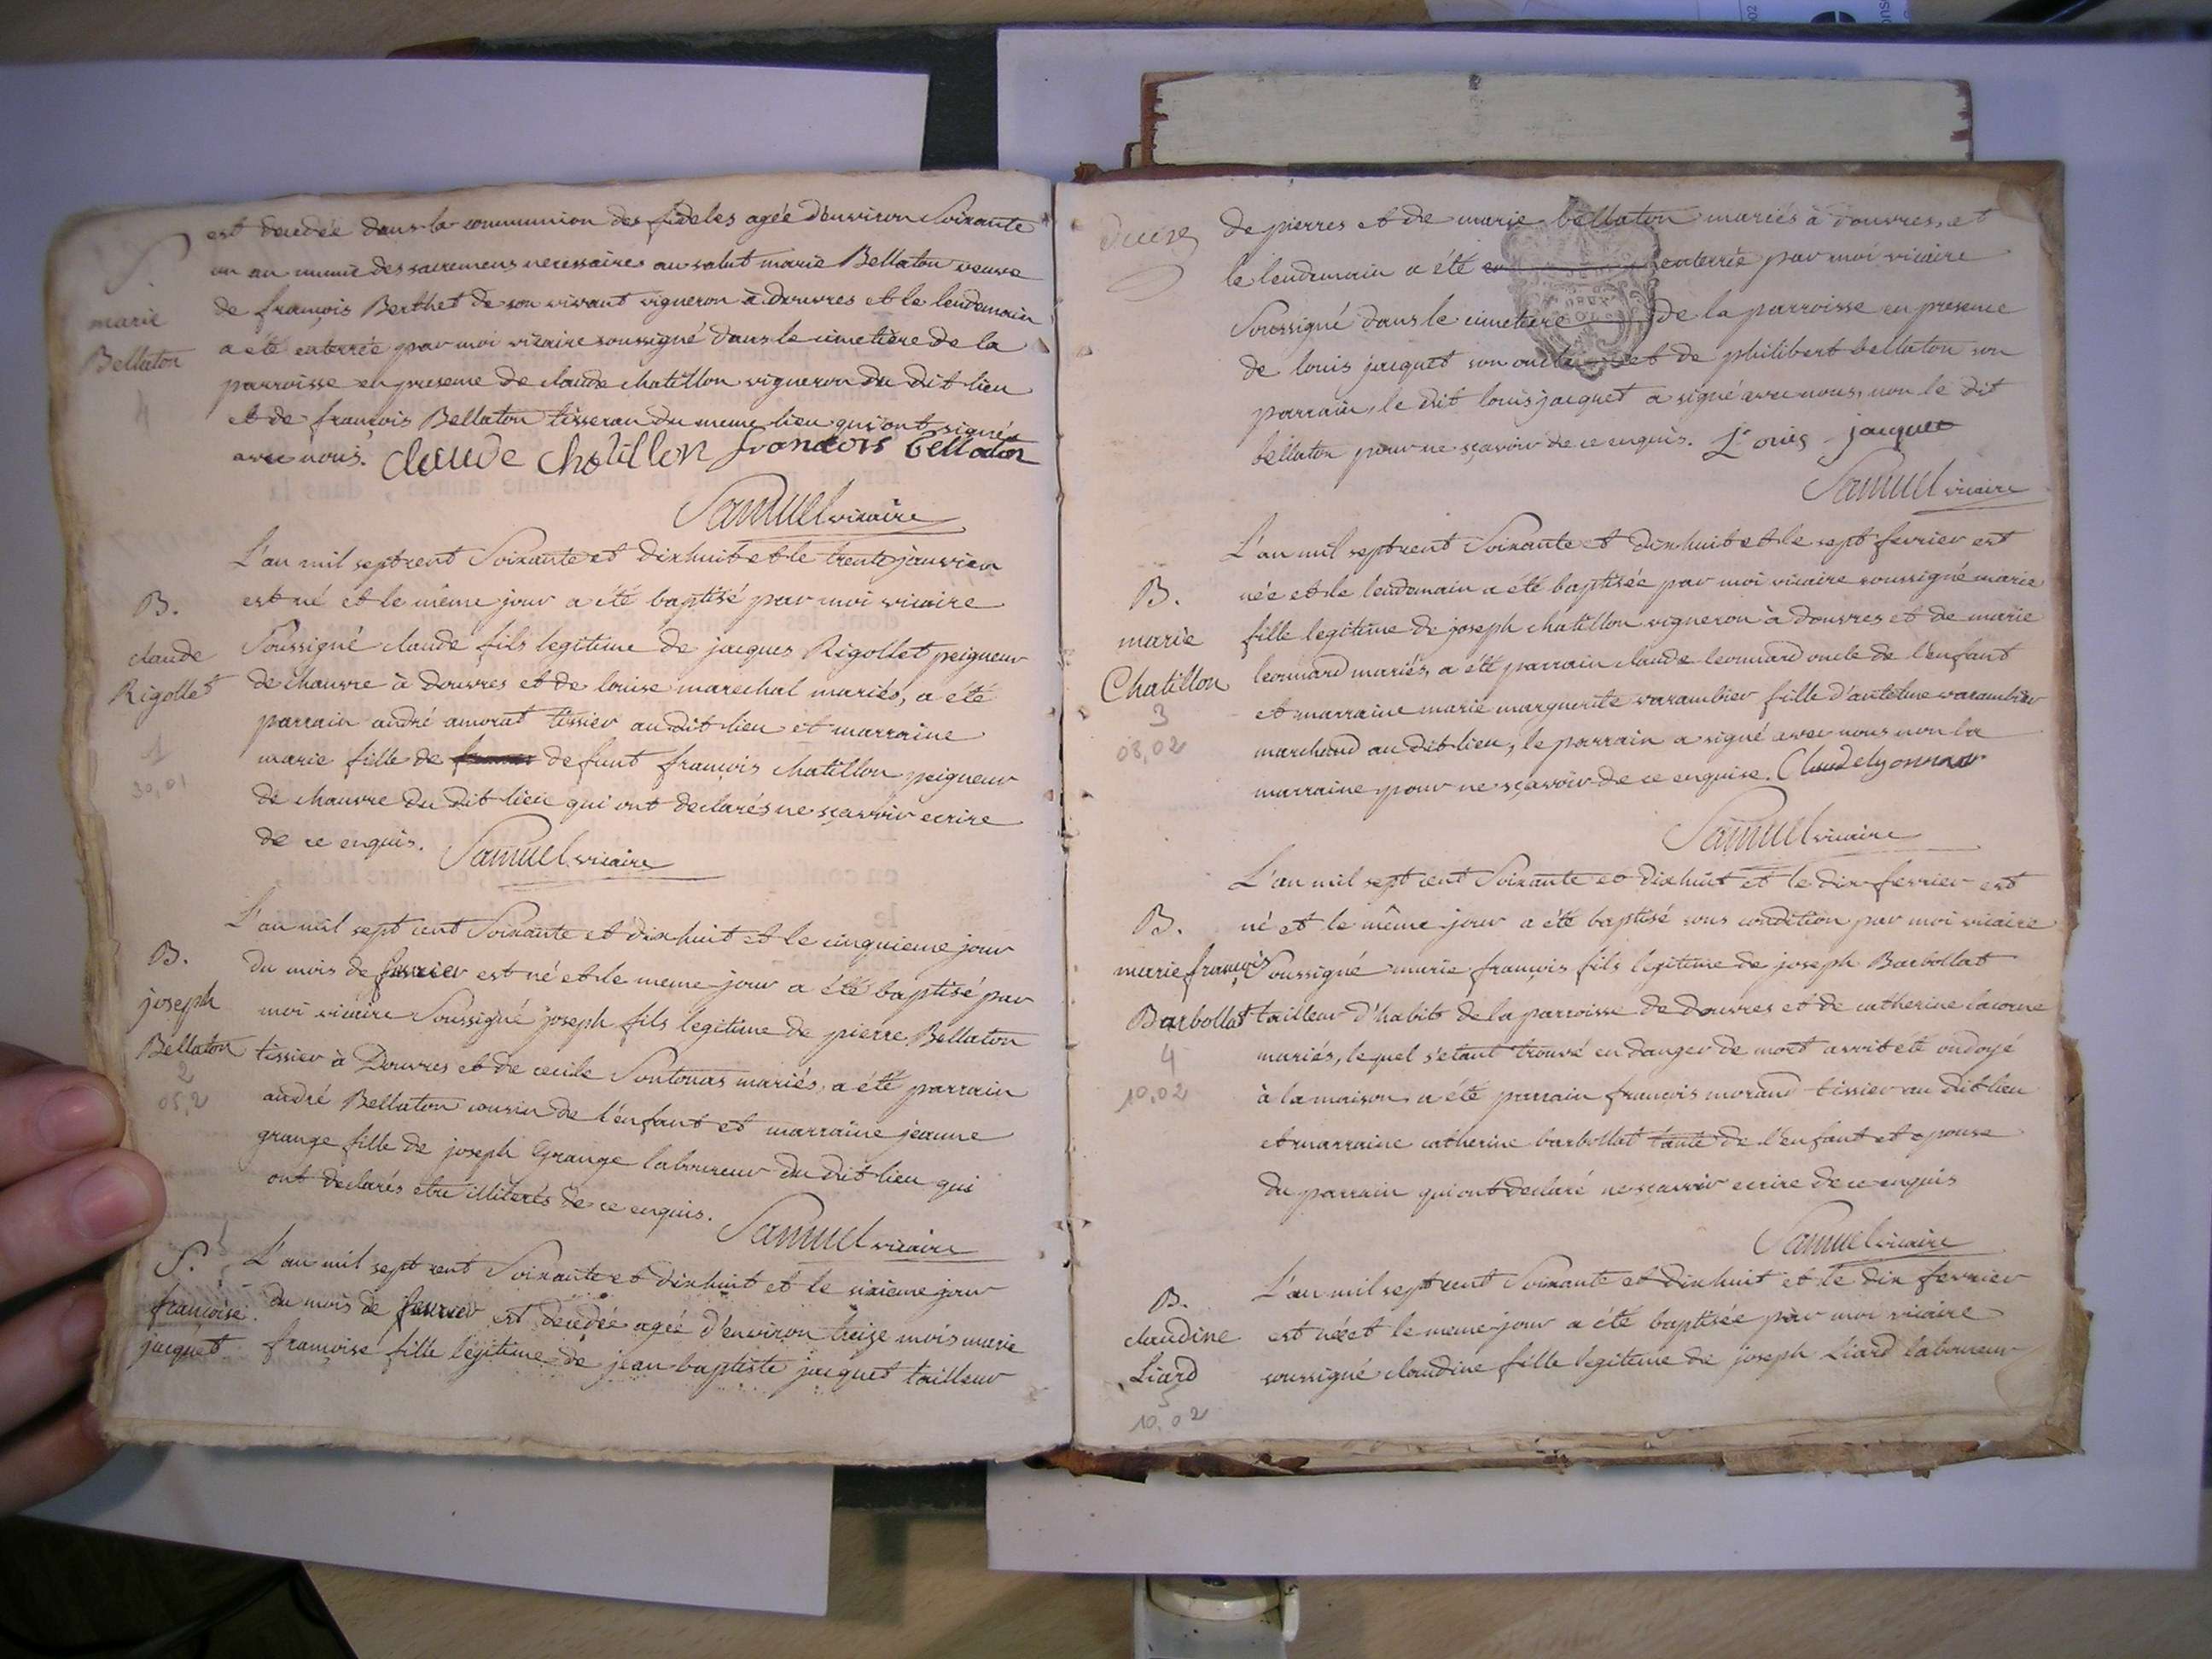 S
marie
Bellaton
4
est decedée dans la communion des fideles agée d'environ Soixante
un an munie des sacremens necessaires au salut marie Bellaton veuve
de françois Berthet de son vivant vigneron à douvres et le lendemain
a été enterrée par moi vicaire soussigné dans le cimetière de la
parroisse en presence de claude chatillon vigneron du dit lieu
et de françois Bellaton tisseran du meme lieu qui ont signé
avec nous. claude chatillon francois bellaton
Samuel vicaire
B.
claude
Rigollet
1
30,01
L'an mil sept cent Soixante et dix huit et le trente janvier
est né et le même jour a été baptisé par moi vicaire
Soussigné claude fils legitime de jacques Rigollet peigneur
de chanvre à douvres et de louise marechal mariés, a été
parrain andré amorat tissier au dit lieu et marraine
marie fille de defunt françois chatillon peigneur
de chanvre du dit lieu qui ont declarés ne sçavoir ecrire
de ce enquis. Samuel vicaire
B.
joseph
Bellaton
2
05,2
L'an mil sept cent Soixante et dix huit et le cinquieme jour
du mois de fevrier est né et le meme jour a été baptisé par
moi vicaire Soussigné joseph fils legitime de pierre Bellaton
tissier à Douvres et de cecile mariés, a été parrain
andré Bellaton cousin de l'enfant et marraine jeanne
grange fille de joseph Grange laboureur du dit lieu qui
ont declarés etre illiterés de ce enquis.
Samuel vicaire
S.
françoise
jacquet
L'an mil sept cent Soixante et dix huit et le sixieme jour
du mois de fevrier est decedée agée d'environ treize mois marie
francoise fille legitime de jean baptiste jacquet tailleur
de pierres et de marie bellaton mariés à douvres, et
le lendemain a été enterrée par moi vicaire
Soussigné dans le cimetiere de la parroisse en presence
de louis jacquet son oncle et de philibert bellaton son
parrain, le dit louis jacquet a signé avec nous, non le dit
bellaton pour ne sçavoir de ce enquis. Louis jacquet
Samuel vicaire
B.
marie
Chatillon
3
08,02
L'an mil sept cent Soixante et dix huit et le sept fevrier est
née et le lendemain a été baptisée par moi vicaire soussigné marie
fille legitime de joseph chatillon vigneron à douvres et de marie
leonnard mariés, a été parrain claude leonnard oncle de l'enfant
et marraine marie marguerite varambier fille d'antelme varambier
marchand au dit lieu, le parrain a signé avec nous non la
marraine pour ne sçavoir de ce enquise. Claude lyonnard
Samuel vicaire
B.
marie françois
Barbollat
4
10,02
L'an mil sept cent Soixante et dix huit et le dix fevrier est
né et le même jour a été baptisé sous condition par moi vicaire
Soussigné marie françois fils legitime de joseph Barbollat
tailleur d'habits de la parroisse de douvres et de catherine lacorne
mariés, lequel s'etant trouvé en danger de mort avoit été ondoyé
à la maison, a été parrain francois morand tissier au dit lieu
et marraine catherine barbollat tante de l'enfant et epouse
du parrain qui ont declaré ne sçavoir ecrire de ce enquis
Samuel vicaire
B.
claudine
Liard
5
10,02
L'an mil sept cent Soixante et dix huit et le dix fevrier
est née et le meme jour a été baptisée par moi vicaire
soussigné claudine fille legitime de joseph Liard laboureur